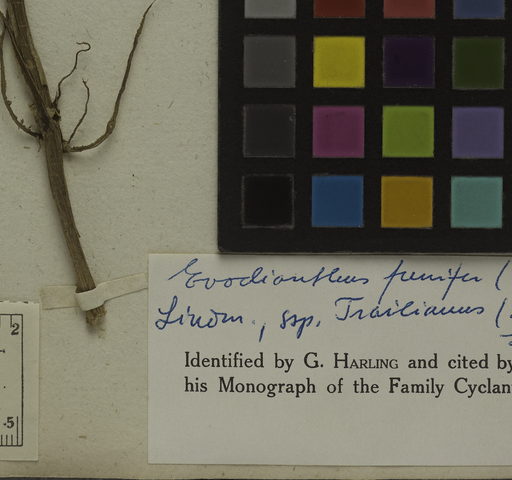 Evodianthus funifer (
Lindm., ssp. Trailianus (
Identified by G. HARLING and cited by
his Monograph of the Family Cyclan
2
.5